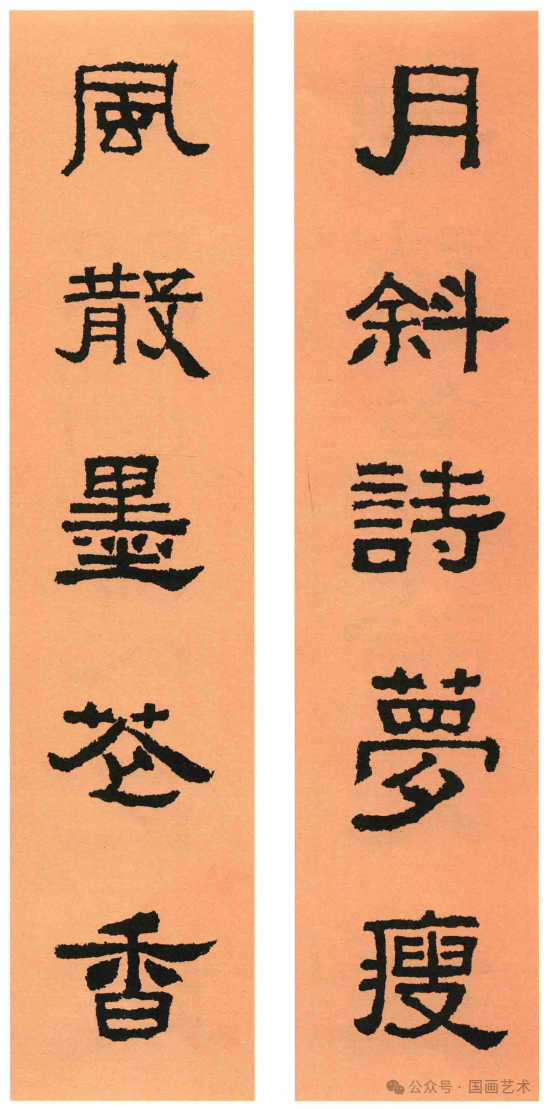 月斜詩夢瘦
風散墨花香
公众号·国画艺术